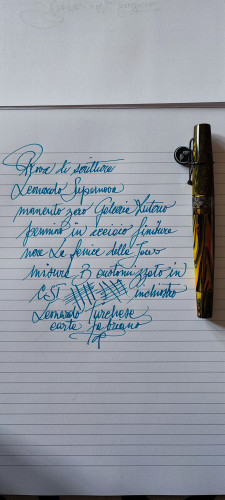 Prova di scrittura
Leonardo Supernova
momento zero Galerie
pennino in acciaio finiture
nere La fenice delle
misura B customizzato in
inchiostro
Leonardo Turchese
carta fabriano